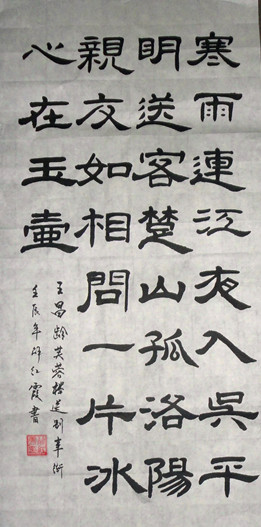 寒雨連江夜入吳平
明送客楚山孤洛陽
親友如相問一片冰
心在玉壺
王昌齡芙蓉楼送别辛漸
壬辰年红霞書